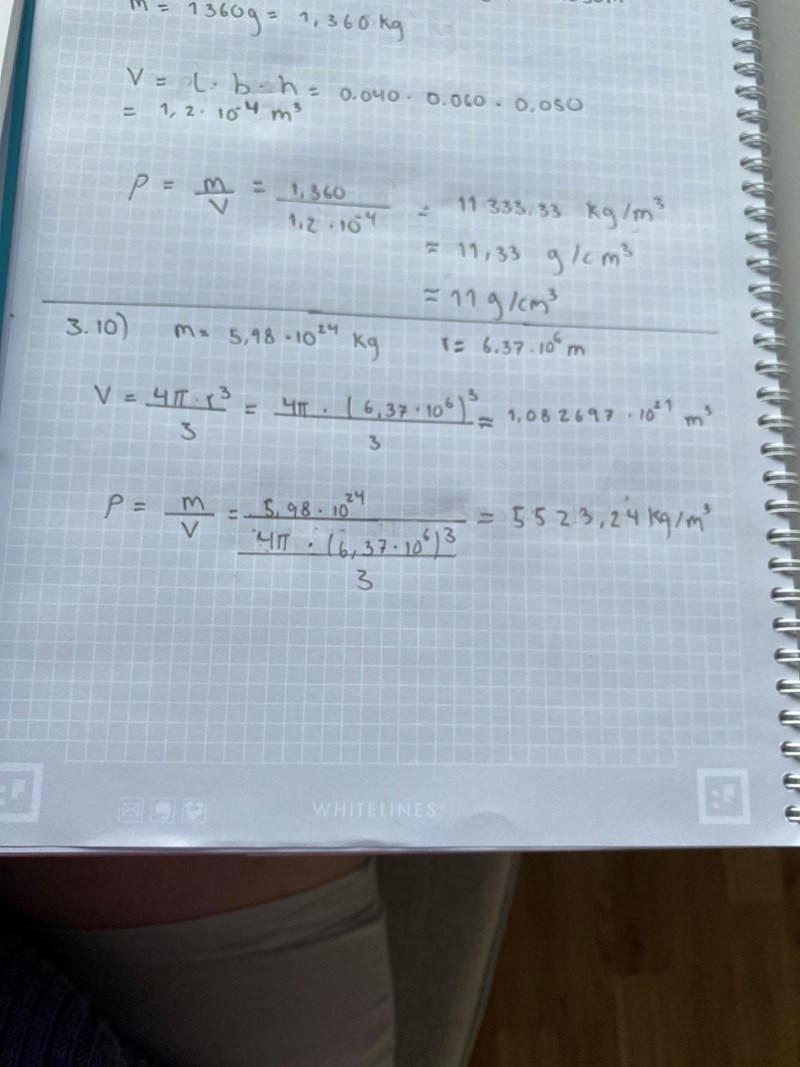 m = 1360g = 1,360 kg
V = l · b · h = 0.040 · 0.060 · 0.050
= 1,2 · 10⁻⁴ m³
ρ = m/V = 1,360 / 1.2 · 10⁻⁴ = 11 333,33 kg/m³
= 11,33 g/cm³
= 11 g/cm³
3.10) m = 5,98 · 10²⁴ kg r = 6.37 · 10⁶ m
V = 4π · r³ / 3 = 4π · (6,37 · 10⁶)³ / 3 = 1,082697 · 10²¹ m³
ρ = m/V = 5,98 · 10²⁴ / (4π · (6,37 · 10⁶)³ / 3) = 5523,24 kg/m³
WHITELINES